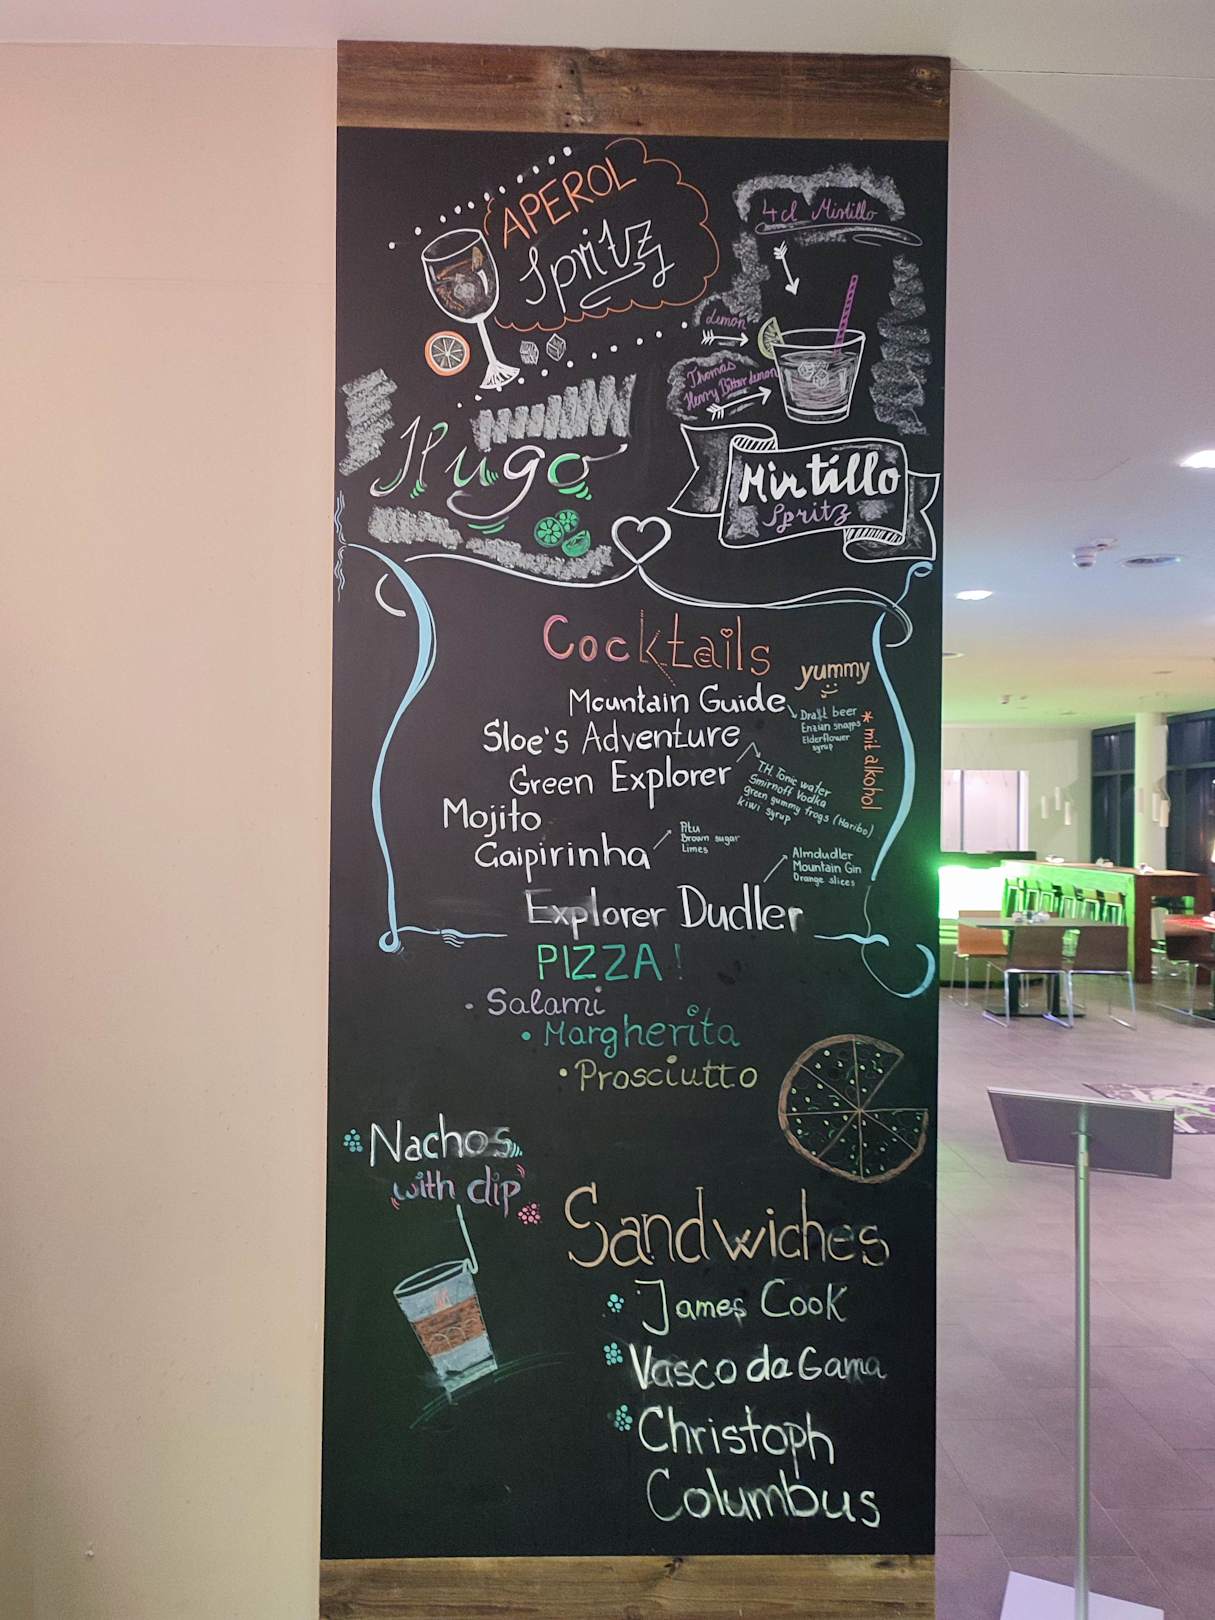 APEROL
Spritz
4cl Mirtillo
Lemon
Thomas
Henry Bitter Lemon
Hugo
Mirtillo
Spritz
Cocktails
yummy
Mountain Guide
Draft beer
Enzian snapps
Elderflower
syrup
* mit alkohol
Sloe's Adventure
Green Explorer
T.H. Tonic water
Smirnoff Vodka
green gummy frogs (Haribo)
Kiwi syrup
Mojito
Caipirinha
Pitu
Brown sugar
Limes
Almdudler
Mountain Gin
Orange slices
Explorer Dudler
PIZZA!
• Salami
• Margherita
• Prosciutto
Nachos
"with dip"
Sandwiches
James Cook
Vasco da Gama
Christoph
Columbus